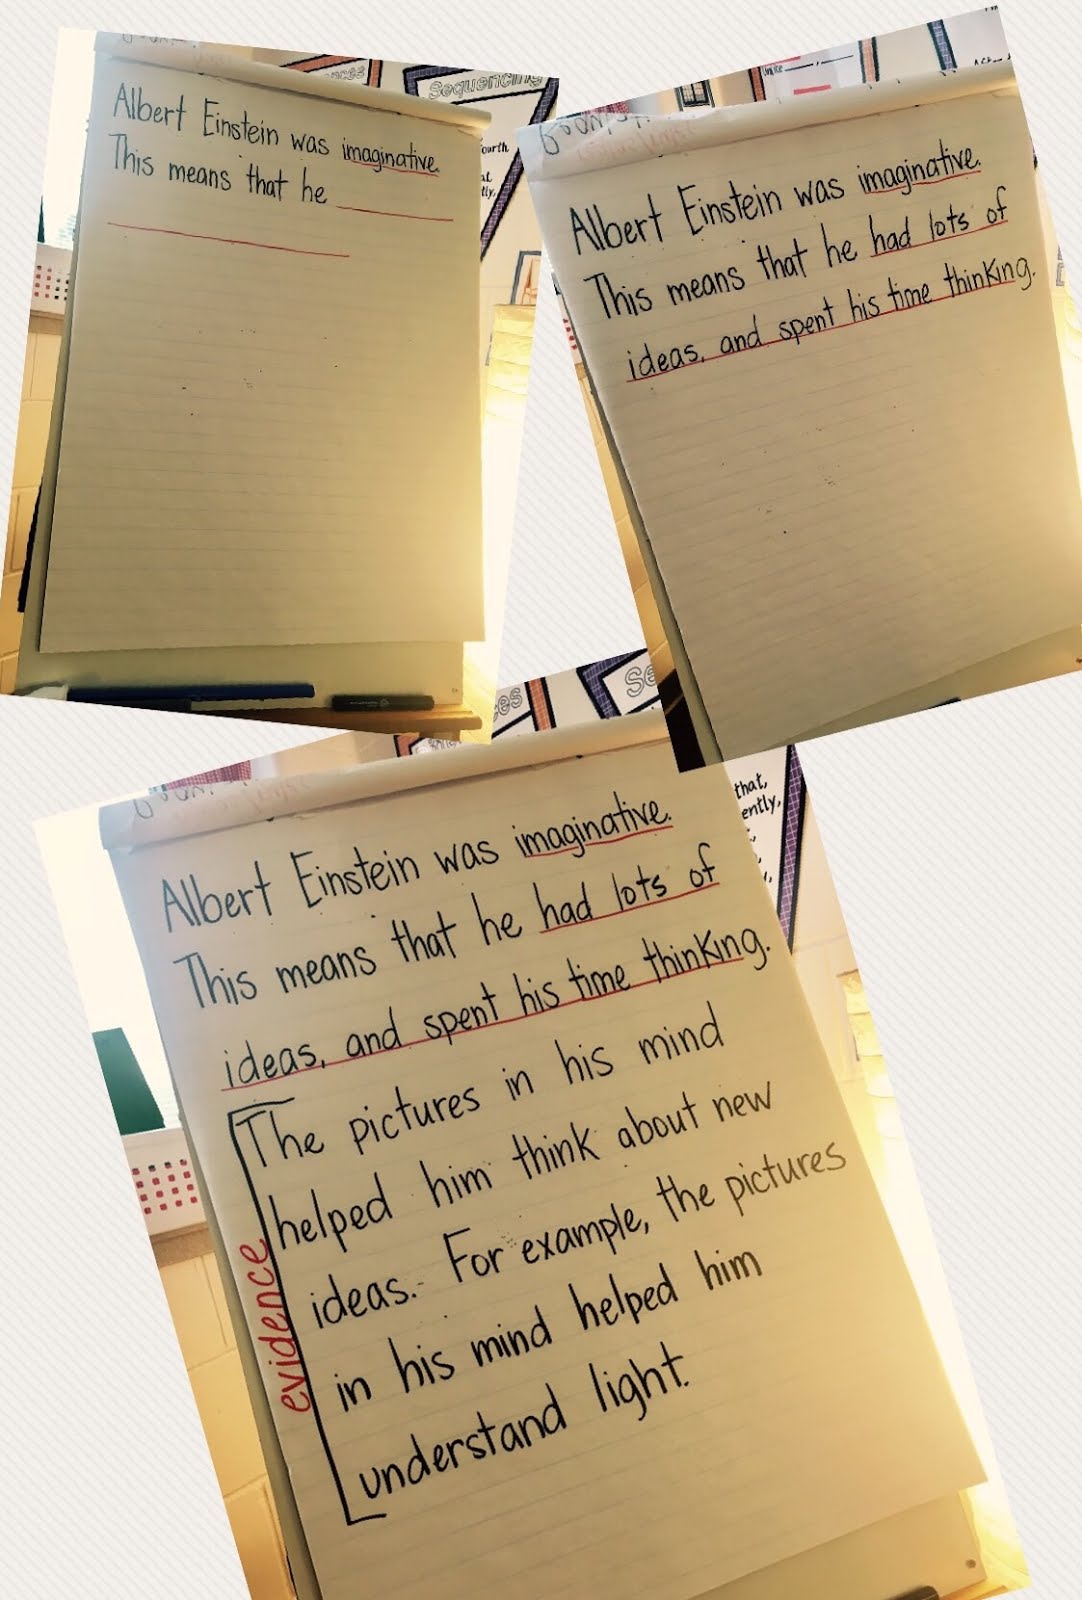 Sequencing
ourth
Albert Einstein was imaginative.
This means that he
Albert Einstein was imaginative.
This means that he had lots of
ideas, and spent his time thinking.
that,
ently,
Albert Einstein was imaginative.
This means that he had lots of
ideas, and spent his time thinking.
The pictures in his mind
helped him think about new
ideas. For example, the pictures
in his mind helped him
understand light.
evidence